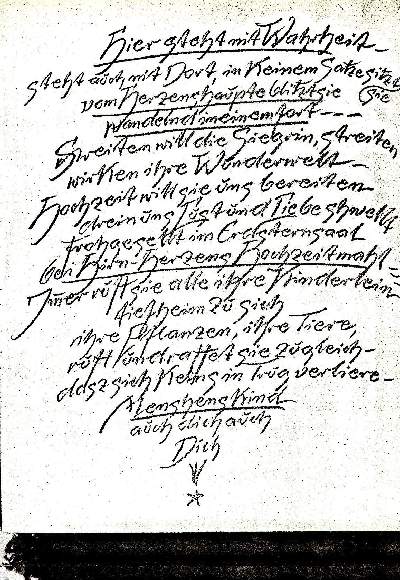 Hier steht mit Wahrheit -
steht auch mit Dort, in keinem Satze sitzt
vom Herzenshaupte blitzt sie (sie
wandelnd in einem fort - - -
Streiten will die Siegrin, streiten
wirken ihre Wunderwelt -
Hochzeit will sie uns bereiten
drein uns Lust und Liebe schwellt
frohgesellt im Erdsternsaal
bei Hirn-Herzens Hochzeitmahl -
Imer ruft sie alle ihre Kinderlein
tiefheim zu sich
ihre Pflanzen, ihre Tiere,
ruft und raffet sie zugleich -
dasz sich keins in Trug verliere -
Menschenskind
auch dich auch
Dich